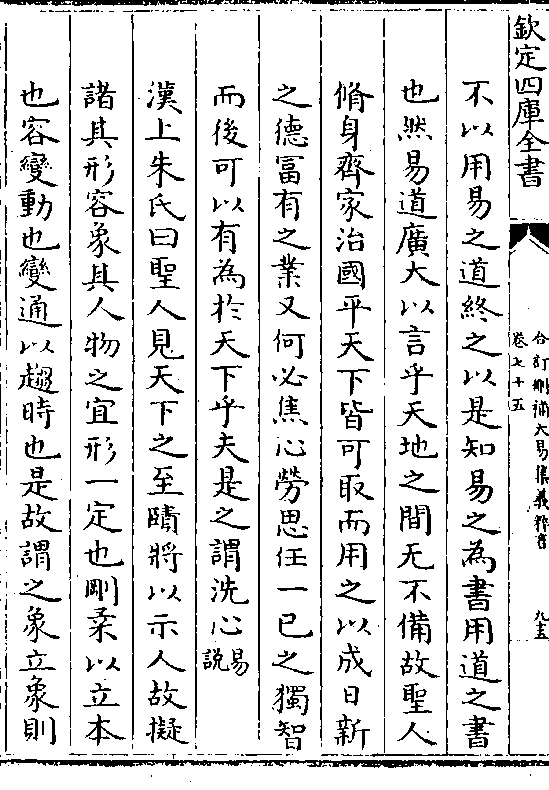 欽定四庫全書
合訂刪補大易集義粹言
卷七十五
九五
不以用易之道終之以是知易之為書用道之書
也然易道廣大以言乎天地之間无不備故聖人
脩身齊家治國平天下皆可取而用之以成日新
之德富有之業又何必焦心勞思任一已之獨智
而後可以有為於天下乎夫是之謂洗心易說
漢上朱氏曰聖人見天下之至賾將以示人故擬
諸其形容象其人物之宜形一定也剛柔以立本
也容變動也變通以趨時也是故謂之象立象則